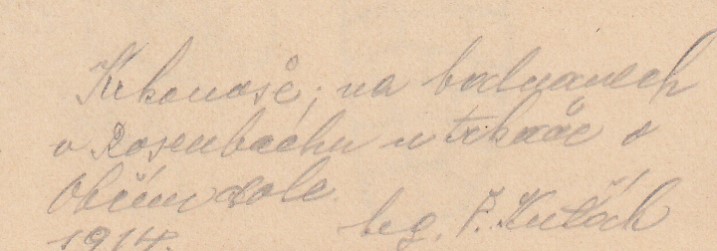 Krkonoše; na balvanech
v Rosenbachu u tabule v
Obřím dole.
1914. leg. F. Kuťák